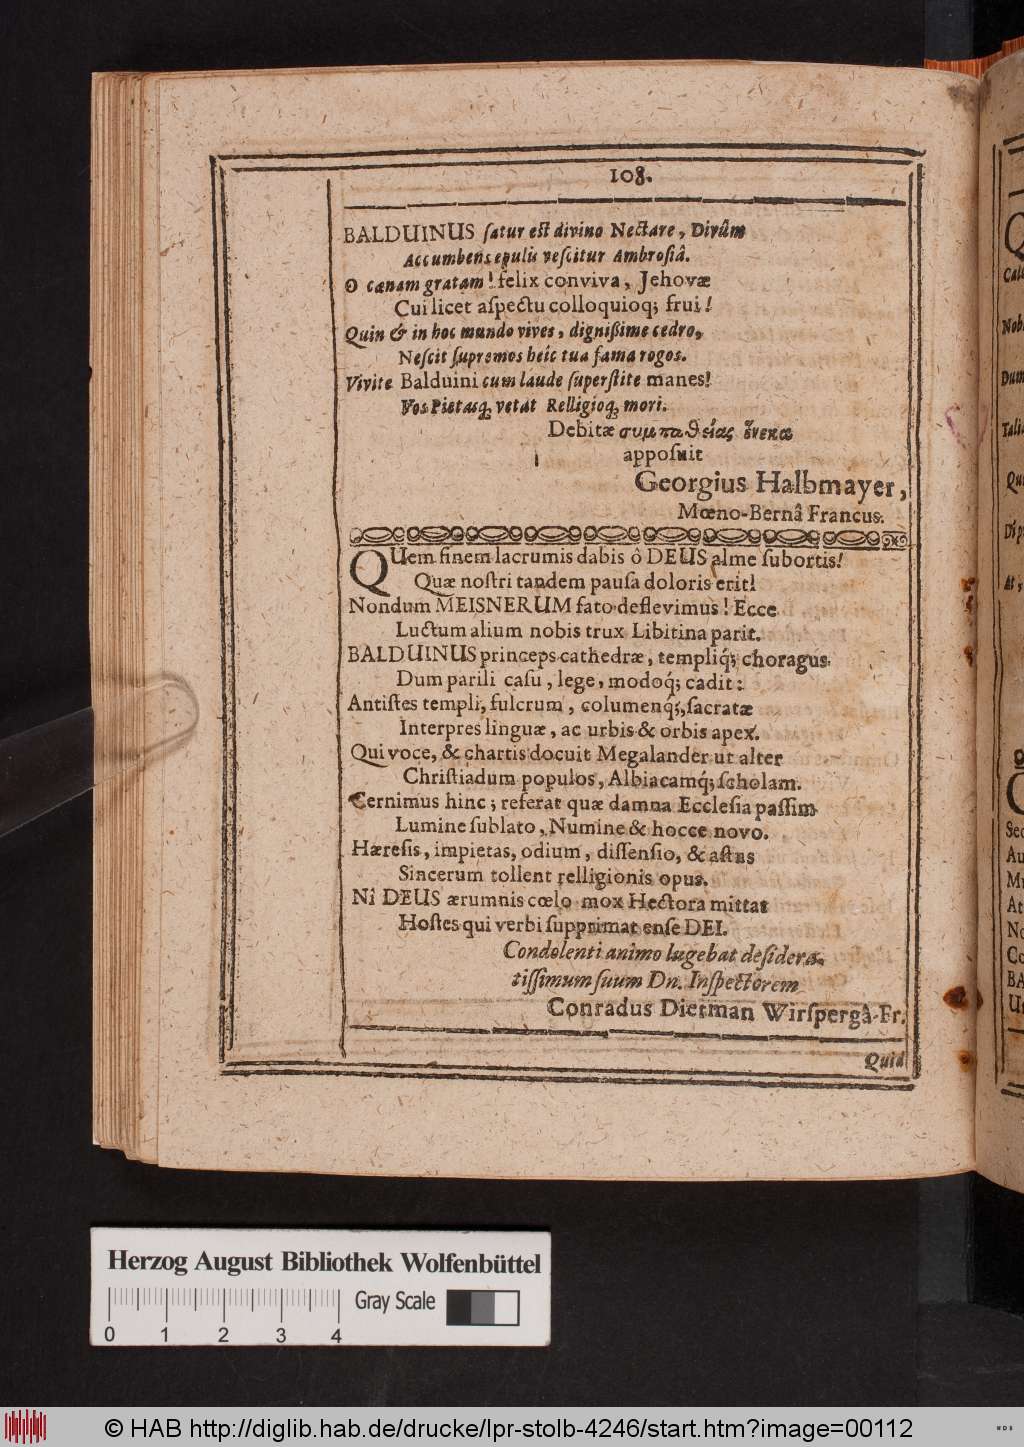 108.
BALDUINUS ſatur eſt divino Nectare, Divûm
Accumbens epulis veſcitur Ambroſiâ.
O cœnam gratam! felix conviva, Jehovæ
Cui licet aſpectu colloquioq; frui!
Quin & in hoc mundo vives, digniſſime cedro,
Neſcit ſupremos heîc tua fama rogos.
Vivite Balduini cum laude ſuperſtite manes!
Vos Pietasq; vetat Relligioq; mori.
Debitæ συμπαθείας ἕνεκα
appoſuit
Georgius Halbmayer,
Mœno-Bernâ Francus.
QUem finem lacrumis dabis ô DEUS alme ſubortis!
Quæ noſtri tandem pauſa doloris erit!
Nondum MEISNERUM fato deflevimus! Ecce
Luctum alium nobis trux Libitina parit.
BALDUINUS princeps cathedræ, templiq́; choragus
Dum parili caſu, lege, modoq́; cadit:
Antiſtes templi, fulcrum, columenq́;, ſacratæ
Interpres linguæ, ac urbis & orbis apex.
Qui voce, & chartis docuit Megalander ut alter
Chriſtiadum populos, Albiacamq́; ſcholam.
Cernimus hinc; referat quæ damna Eccleſia paſſim
Lumine ſublato, Numine & hocce novo.
Hæreſis, impietas, odium, diſſenſio, & aſtus
Sincerum tollent relligionis opus.
Nî DEUS ærumnis cœlo mox Hectora mittat
Hoſtes qui verbi ſupprimat enſe DEI.
Condolenti animo lugebat deſidera-
tiſſimum ſuum Dn. Inſpectorem
Conradus Dietman Wirſpergâ-Fr.
Quid
Herzog August Bibliothek Wolfenbüttel
Gray Scale
0 1 2 3 4
© HAB http://diglib.hab.de/drucke/lpr-stolb-4246/start.htm?image=00112